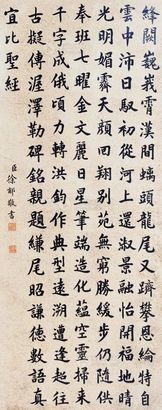 絳闕巍峩霄漢間螭頭龍尾又躋攀恩綸特自
雲中沛日馭初從河上還淑景融怡開福地晴
光明媚霽天顔回翔別苑勝緩步仍隨供
奉班七曜金文麗日星筆端造化蘊空靈掃來
千字成俄頃力轉洪鈞作典型遠溯遭逢超往
古擬傳渥澤勒碑銘親題縑尾昭謙德數語真
宜比聖經
臣徐郙敬書